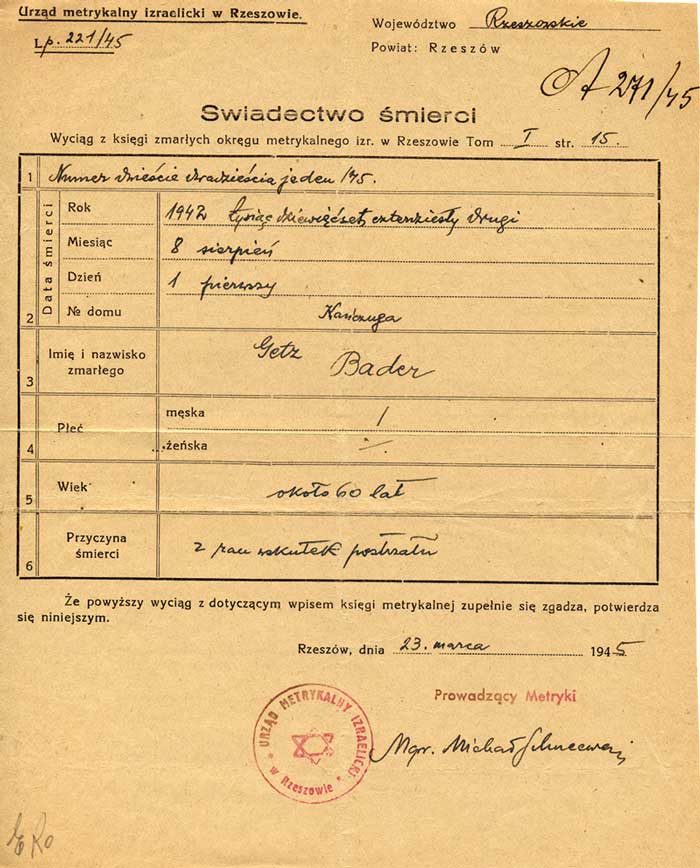 Urząd metrykalny izraelicki w Rzeszowie.
Lp. 221/45
Województwo Rzeszowskie
Powiat: Rzeszów
A 271/45
Swiadectwo śmierci
Wyciąg z księgi zmarłych okręgu metrykalnego izr. w Rzeszowie Tom I str. 15.
1 Numer dwieście dwadzieścia jeden /45.
Data śmierci
Rok 1942 tysiąc dziewięćset czterdziesty drugi
Miesiąc 8 sierpień
Dzień 1 pierwszy
2 № domu Kańczuga
Imię i nazwisko
zmarłego Getz Bader
3
Płeć
męska /
żeńska
4
Wiek około 60 lat
5
Przyczyna
śmierci z ran wskutek postrzału
6
Że powyższy wyciąg z dotyczącym wpisem księgi metrykalnej zupełnie się zgadza, potwierdza
się niniejszym.
Rzeszów, dnia 23. marca 1945
Prowadzący Metryki
Mgr. Michał
* URZĄD METRYKALNY IZRAELICKI *
w Rzeszowie